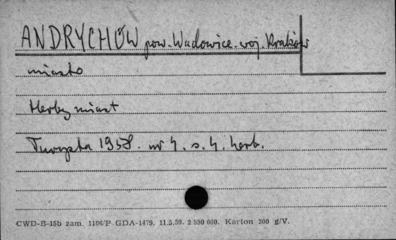 ANDRYCHÓW pow. Wadowice. woj. Kraków
miasto
Herby miast
Turysta 1958. nr 4. s. 4. herb.
CWD-B-15b zam. 1106/P GDA-1479. 11.5.59. 2 500 000. Karton 200 g/V.